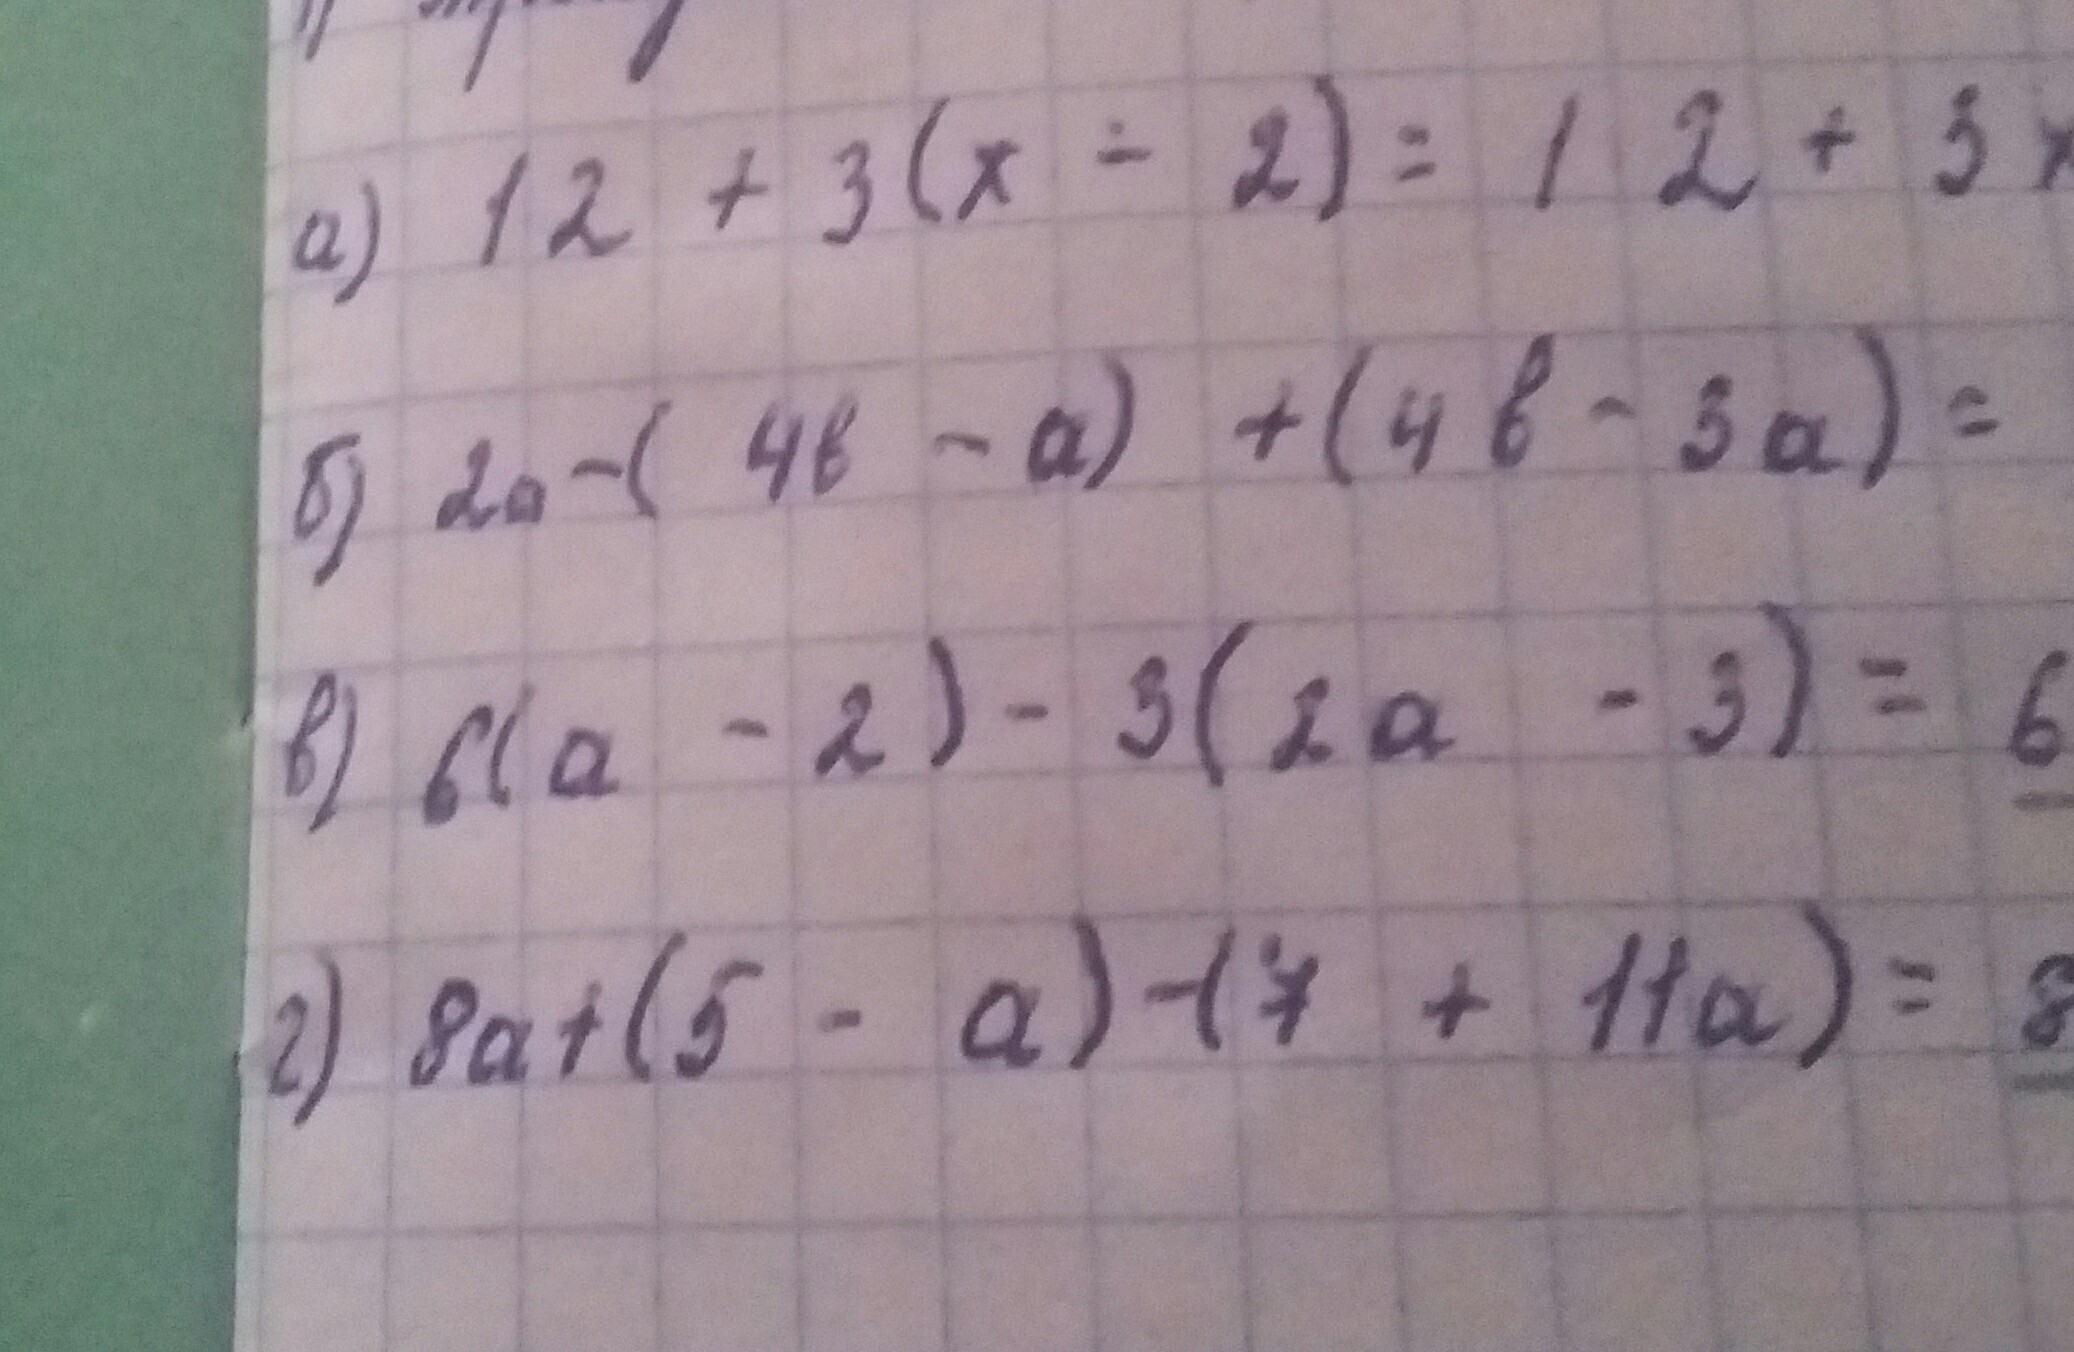 а) 12 + 3(x - 2) = 12 + 3x
б) 2a - (4в - a) + (4в - 3a) =
в) 6(a - 2) - 3(2a - 3) = 6
г) 8a + (5 - a) - (7 + 11a) = 8